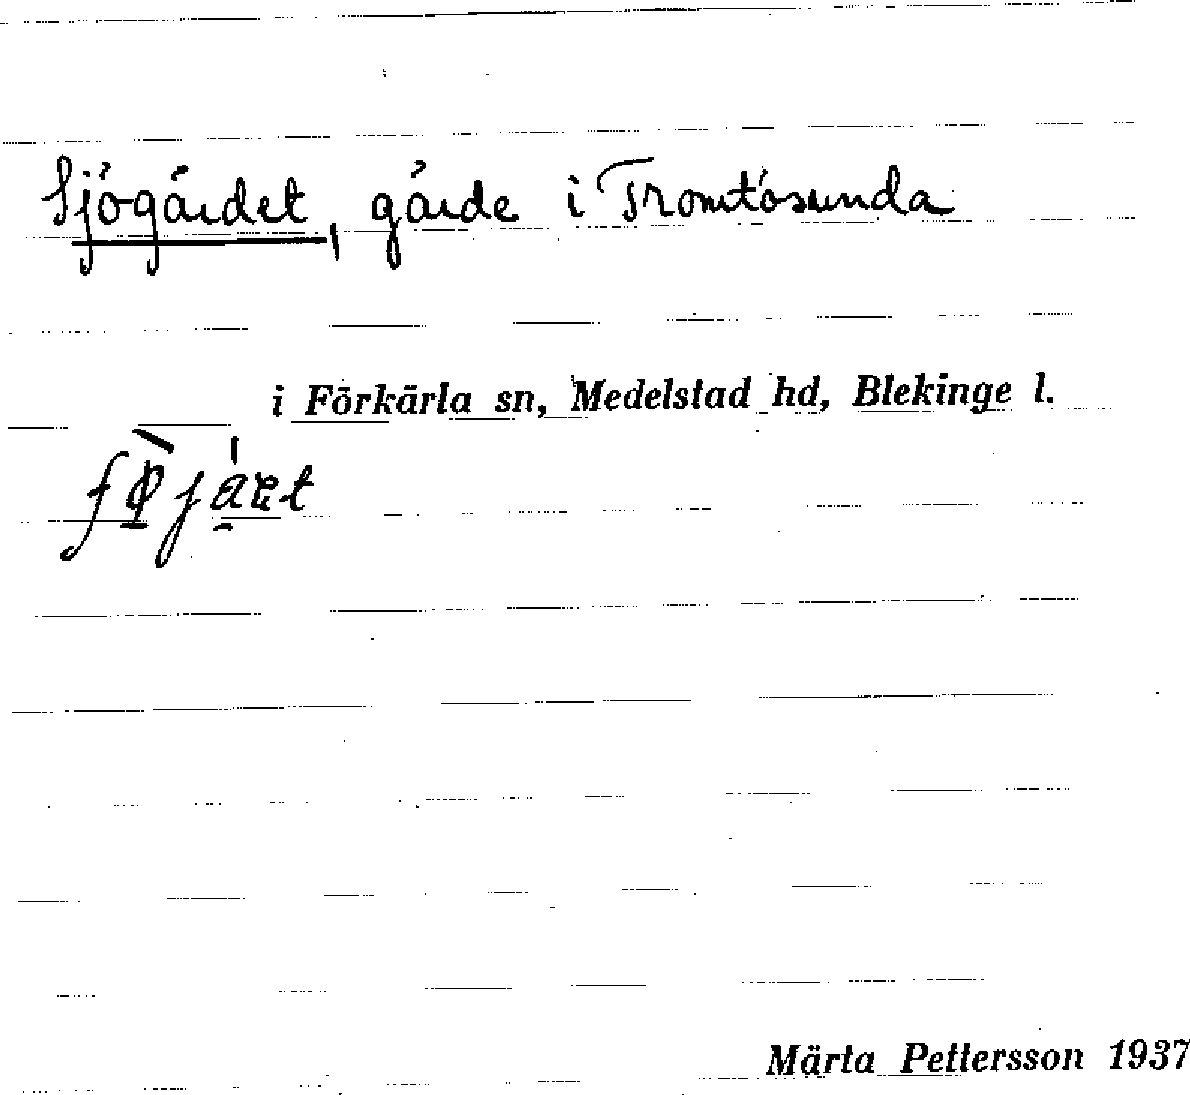 Sjögärdet, gärde i Tromtösunda
i Förkärla sn, Medelstad hd, Blekinge l.
Märta Pettersson 1937